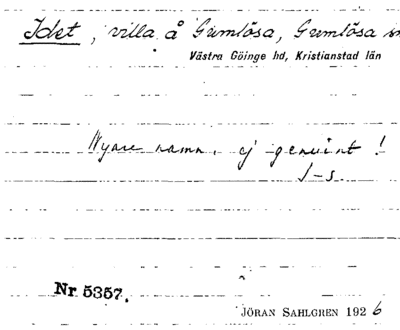 Idet, villa å Gumlösa, Gumlösa
Västra Göinge hd, Kristianstad län
Nyare namn, ej genuint!
J-s.
Nr 5357.
JÖRAN SAHLGREN 1926